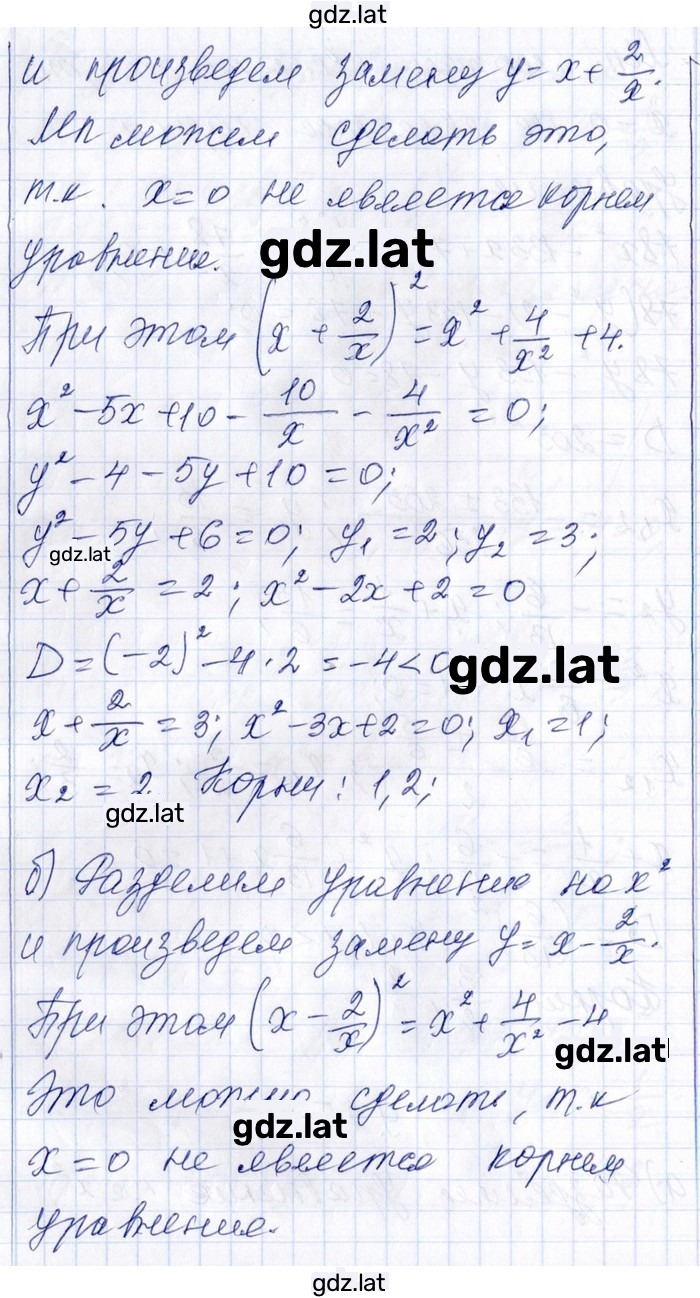 gdz.lat
и произведем замену y = x + 2/x.
Мы можем сделать это,
т.к. x = 0 не является корнем
уравнения.
gdz.lat
При этом (x + 2/x)² = x² + 4/x² + 4.
x² - 5x + 10 - 10/x - 4/x² = 0;
y² - 4 - 5y + 10 = 0;
y² - 5y + 6 = 0; y₁ = 2; y₂ = 3;
gdz.lat
x + 2/x = 2; x² - 2x + 2 = 0
D = (-2)² - 4·2 = -4 < 0
gdz.lat
x + 2/x = 3; x² - 3x + 2 = 0; x₁ = 1;
x₂ = 2. Корни: 1, 2;
gdz.lat
б) Разделим уравнение на x²
и произведем замену y = x - 2/x.
При этом (x - 2/x)² = x² + 4/x² - 4
gdz.lat
Это можно сделать, т.к
gdz.lat
x = 0 не является корнем
уравнения.
gdz.lat